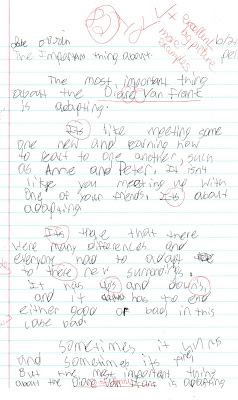 The Important thing about
The most important thing
about the Diane Van Frank
is adapting.
Its like meeting some
one new and learning how
to react to one another, such
as Anne and Peter. It isnt
like you meeting up with
one of your friends. Its about
adapting
Its that there
were many differences and
everyone had to adapt
to there new surrondings.
It has ups and downs,
and it has to end
either good or bad in this
case bad.
Sometimes it
and sometimes its
But the most important thing
about the Diane is adapting